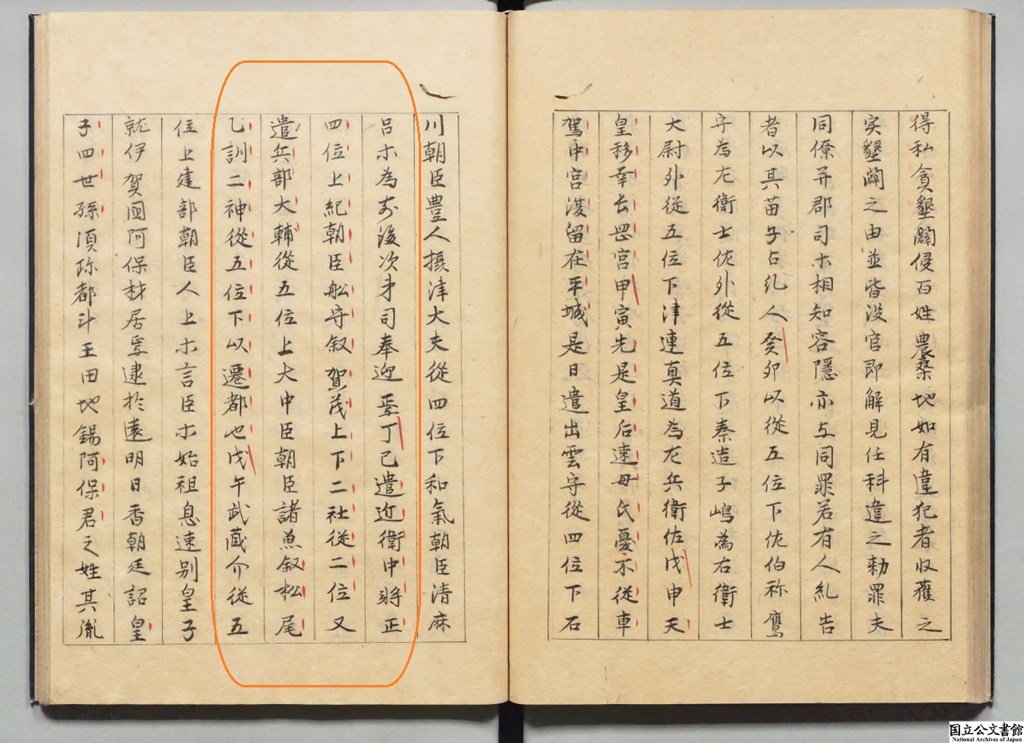 得私貪墾闢侵百姓農桑地如有違犯者収獲之
実墾闢之由並皆没官即解見任科違之勅罪夫
同僚并郡司ホ相知容隠亦与同罪若有人糺告
者以其苗子占糺人癸卯以從五位下佐伯祢鷹
守為左衛士佐外從五位下秦造子嶋為右衛士
大尉外從五位下津連真道為左兵衛佐戊申天
皇移幸長罡宮甲寅先是皇后遭母氏憂不從車
駕中宮後留在平城是日遣出雲守從四位下石
川朝臣豊人摂津大夫從四位下和氣朝臣清麻
呂ホ為前後次第司奉迎焉丁巳遣近衛中将正
四位上紀朝臣船守叙賀茂上下二社從二位又
遣兵部大輔從五位上大中臣朝臣諸魚叙松尾
乙訓二神從五位下以遷都也戊午武蔵介從五
位上建部朝臣人上ホ言臣ホ始祖息速別皇子
就伊賀國阿保村居焉逮於遠明日香朝廷詔皇
子四世孫須珎都斗王田地錫阿保君之姓其胤
国立公文書館
National Archives of Japan